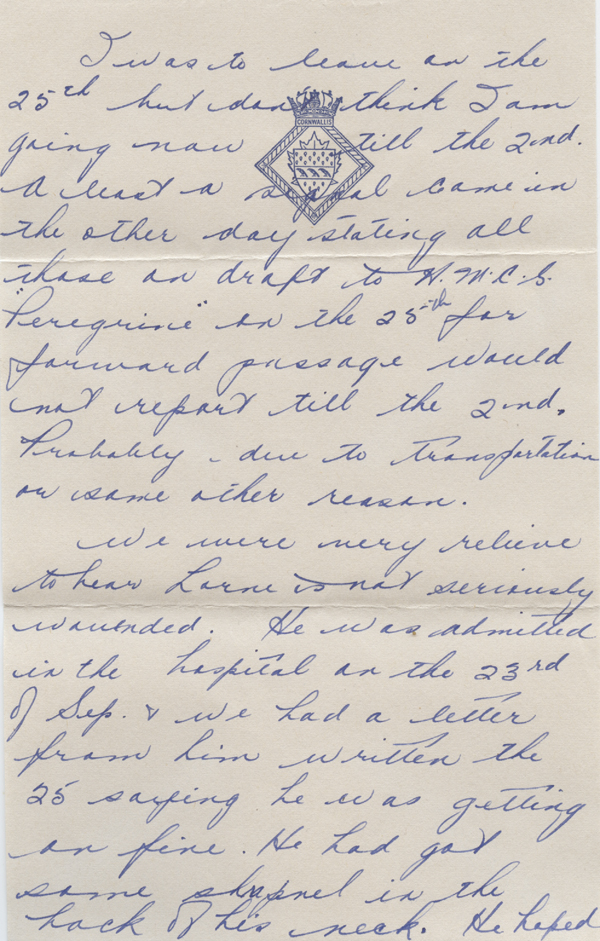 I was to leave on the
25th but don't think I am
CORNWALLIS
going now till the 2nd.
A least a signal came in
the other day stating all
those on draft to H.M.C.S.
"Peregrine" on the 25th for
forward passage would
not report till the 2nd.
Probably - due to transportation
or some other reason.
We were very relieve
to hear Lorne is not seriously
wouended. He was admitted
in the hospital on the 23rd
of Sep. & we had a letter
from him written the
25 saying he was getting
on fine. He had got
some shrapnel in the
back of his neck. He hoped